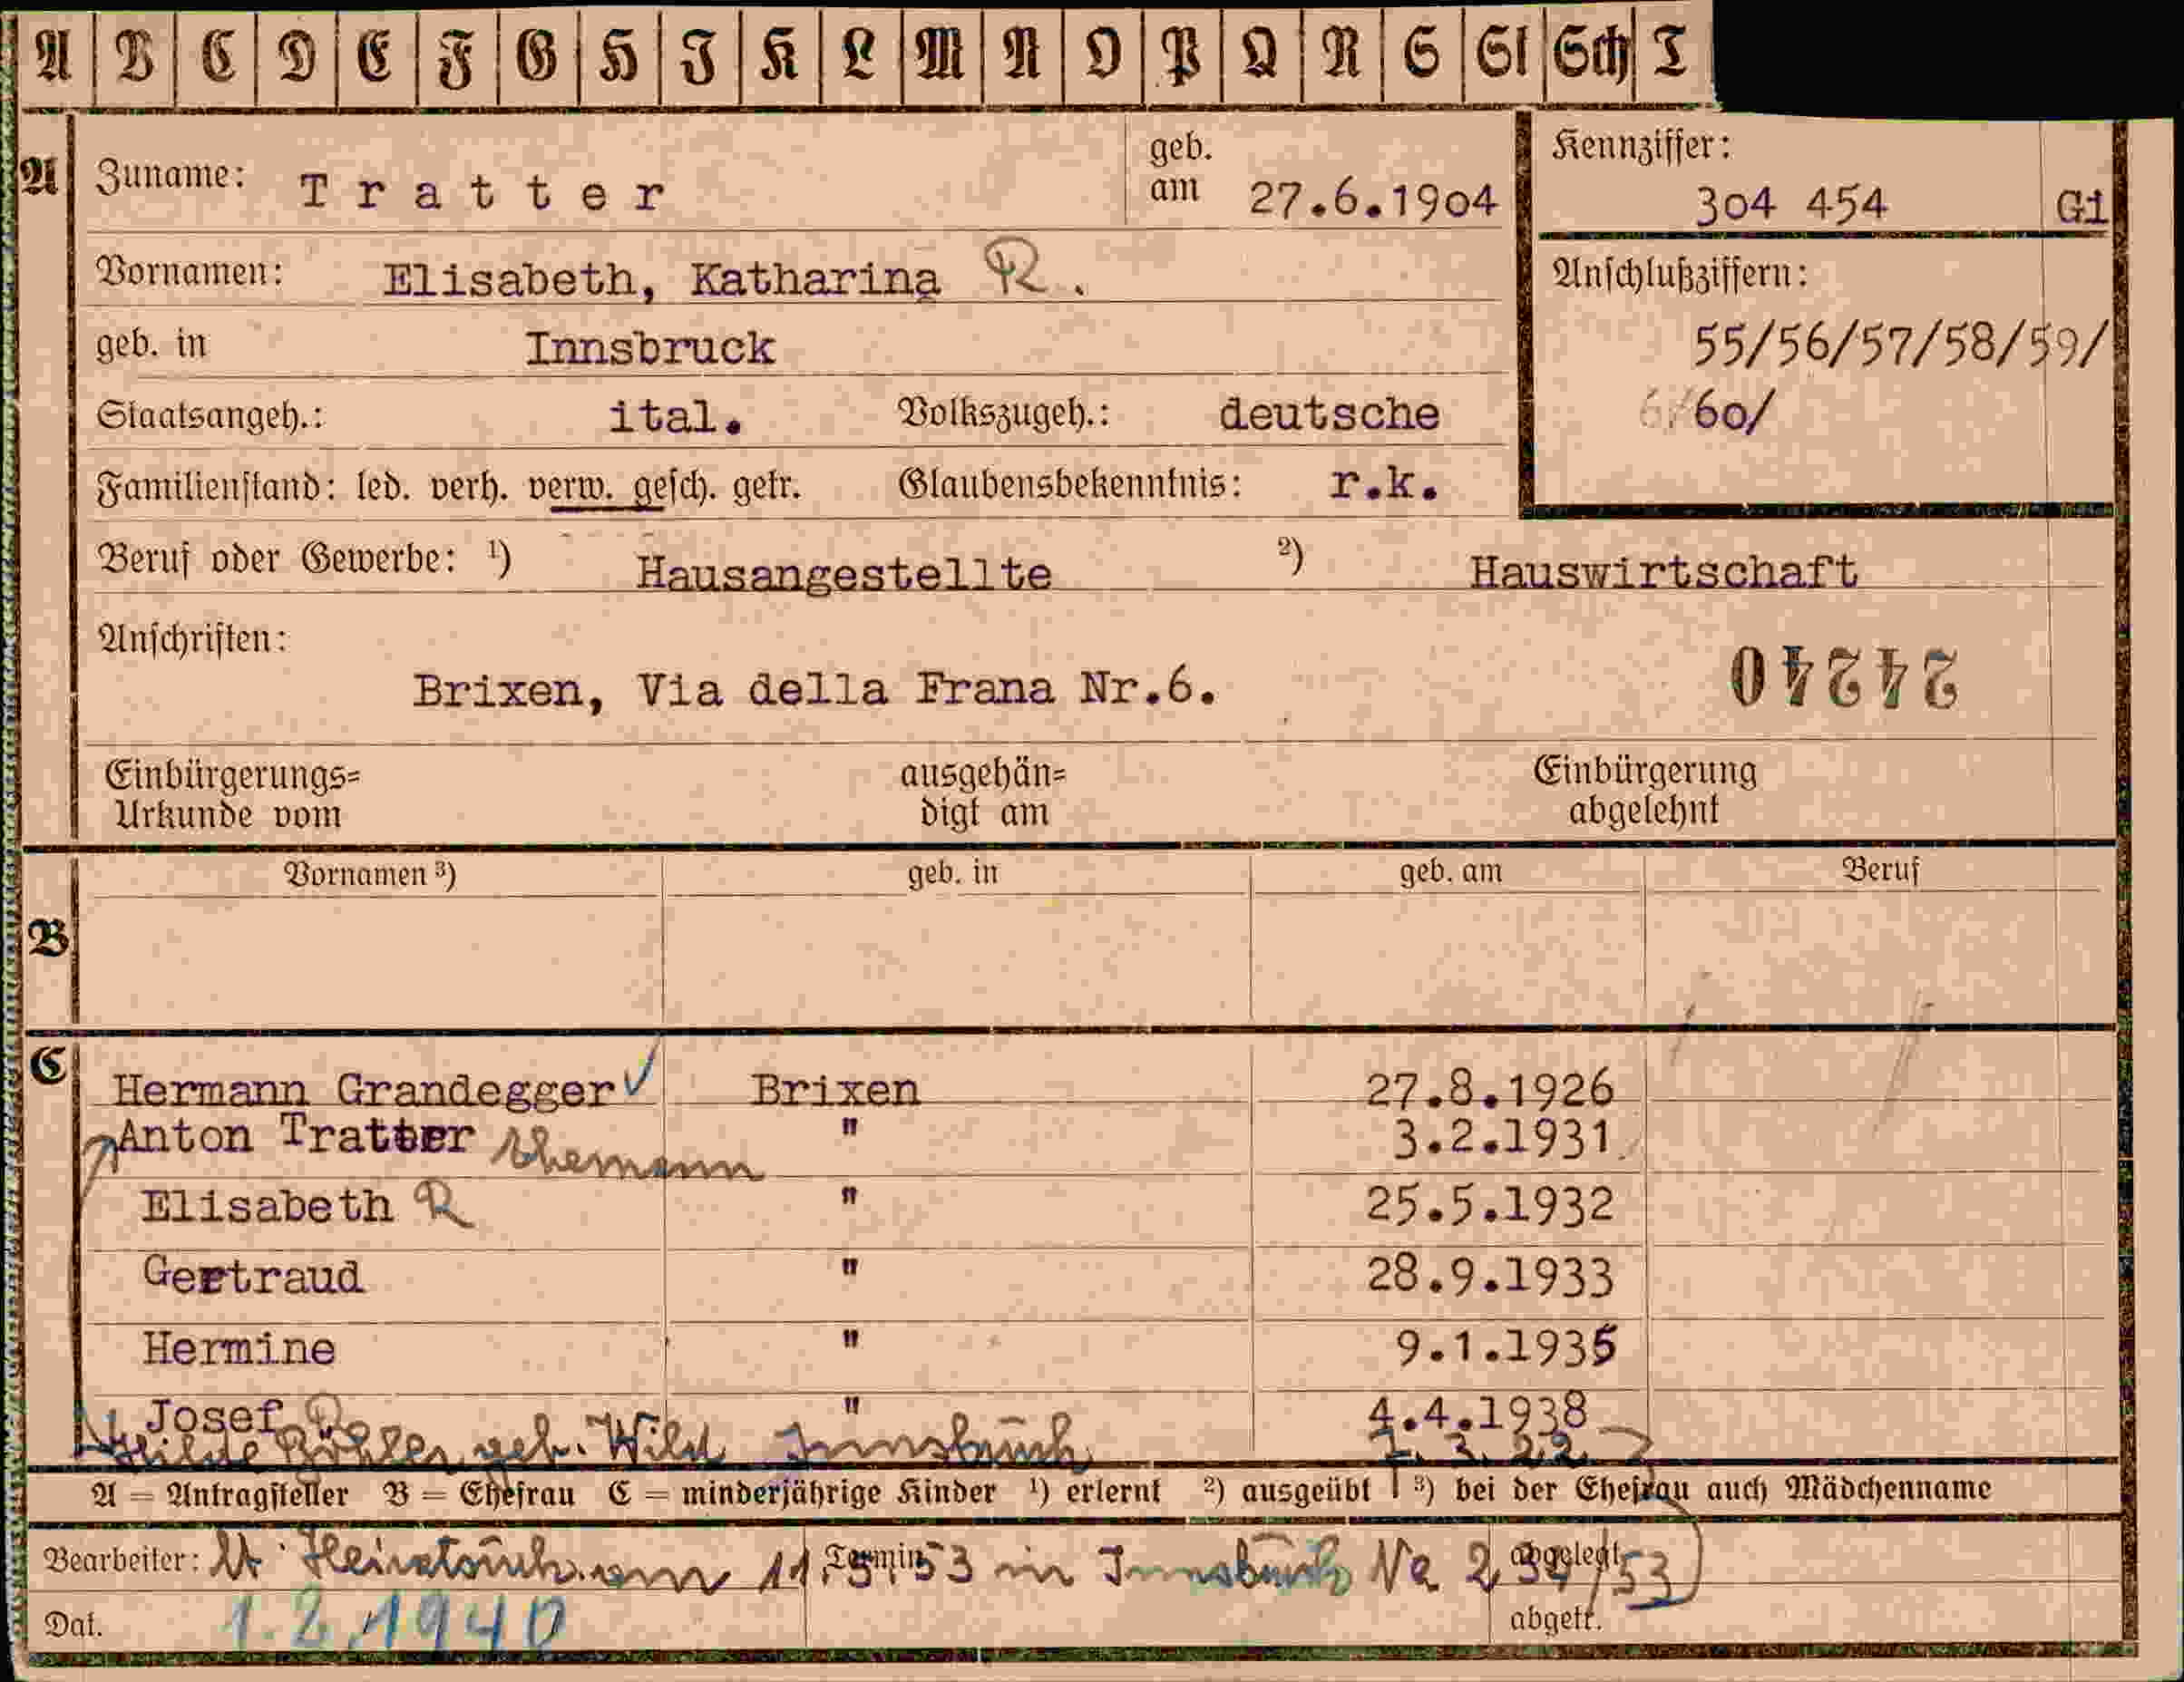 A B C D E F G H J K L M N O P Q R S St Sch T
A Zuname: Tratter geb. am 27.6.1904 Kennziffer: 304 454 Gi
Vornamen: Elisabeth, Katharina R.
Anschlußziffern:
geb. in Innsbruck 55/56/57/58/59/
Staatsangeh.: ital. Volkszugeh.: deutsche 60/
Familienstand: led. verh. verw. gesch. getr. Glaubensbekenntnis: r.k.
Beruf oder Gewerbe: 1) Hausangestellte 2) Hauswirtschaft
Anschriften:
Brixen, Via della Frana Nr.6. 24240
Einbürgerungs= ausgehän= Einbürgerung
Urkunde vom digt am abgelehnt
Vornamen 3) geb. in geb. am Beruf
B
C
Hermann Grandegger Brixen 27.8.1926
Anton Tratter Ehemann " 3.2.1931
Elisabeth R " 25.5.1932
Gertraud " 28.9.1933
Hermine " 9.1.1935
Josef " 4.4.1938
geb. Wild Innsbruck 3. 22
A = Antragsteller B = Ehefrau C = minderjährige Kinder 1) erlernt 2) ausgeübt 3) bei der Ehefrau auch Mädchenname
Bearbeiter: am 11.5.53 Termin in Innsbruck abgelegt
Dat. 1.2.1940 abgetr.